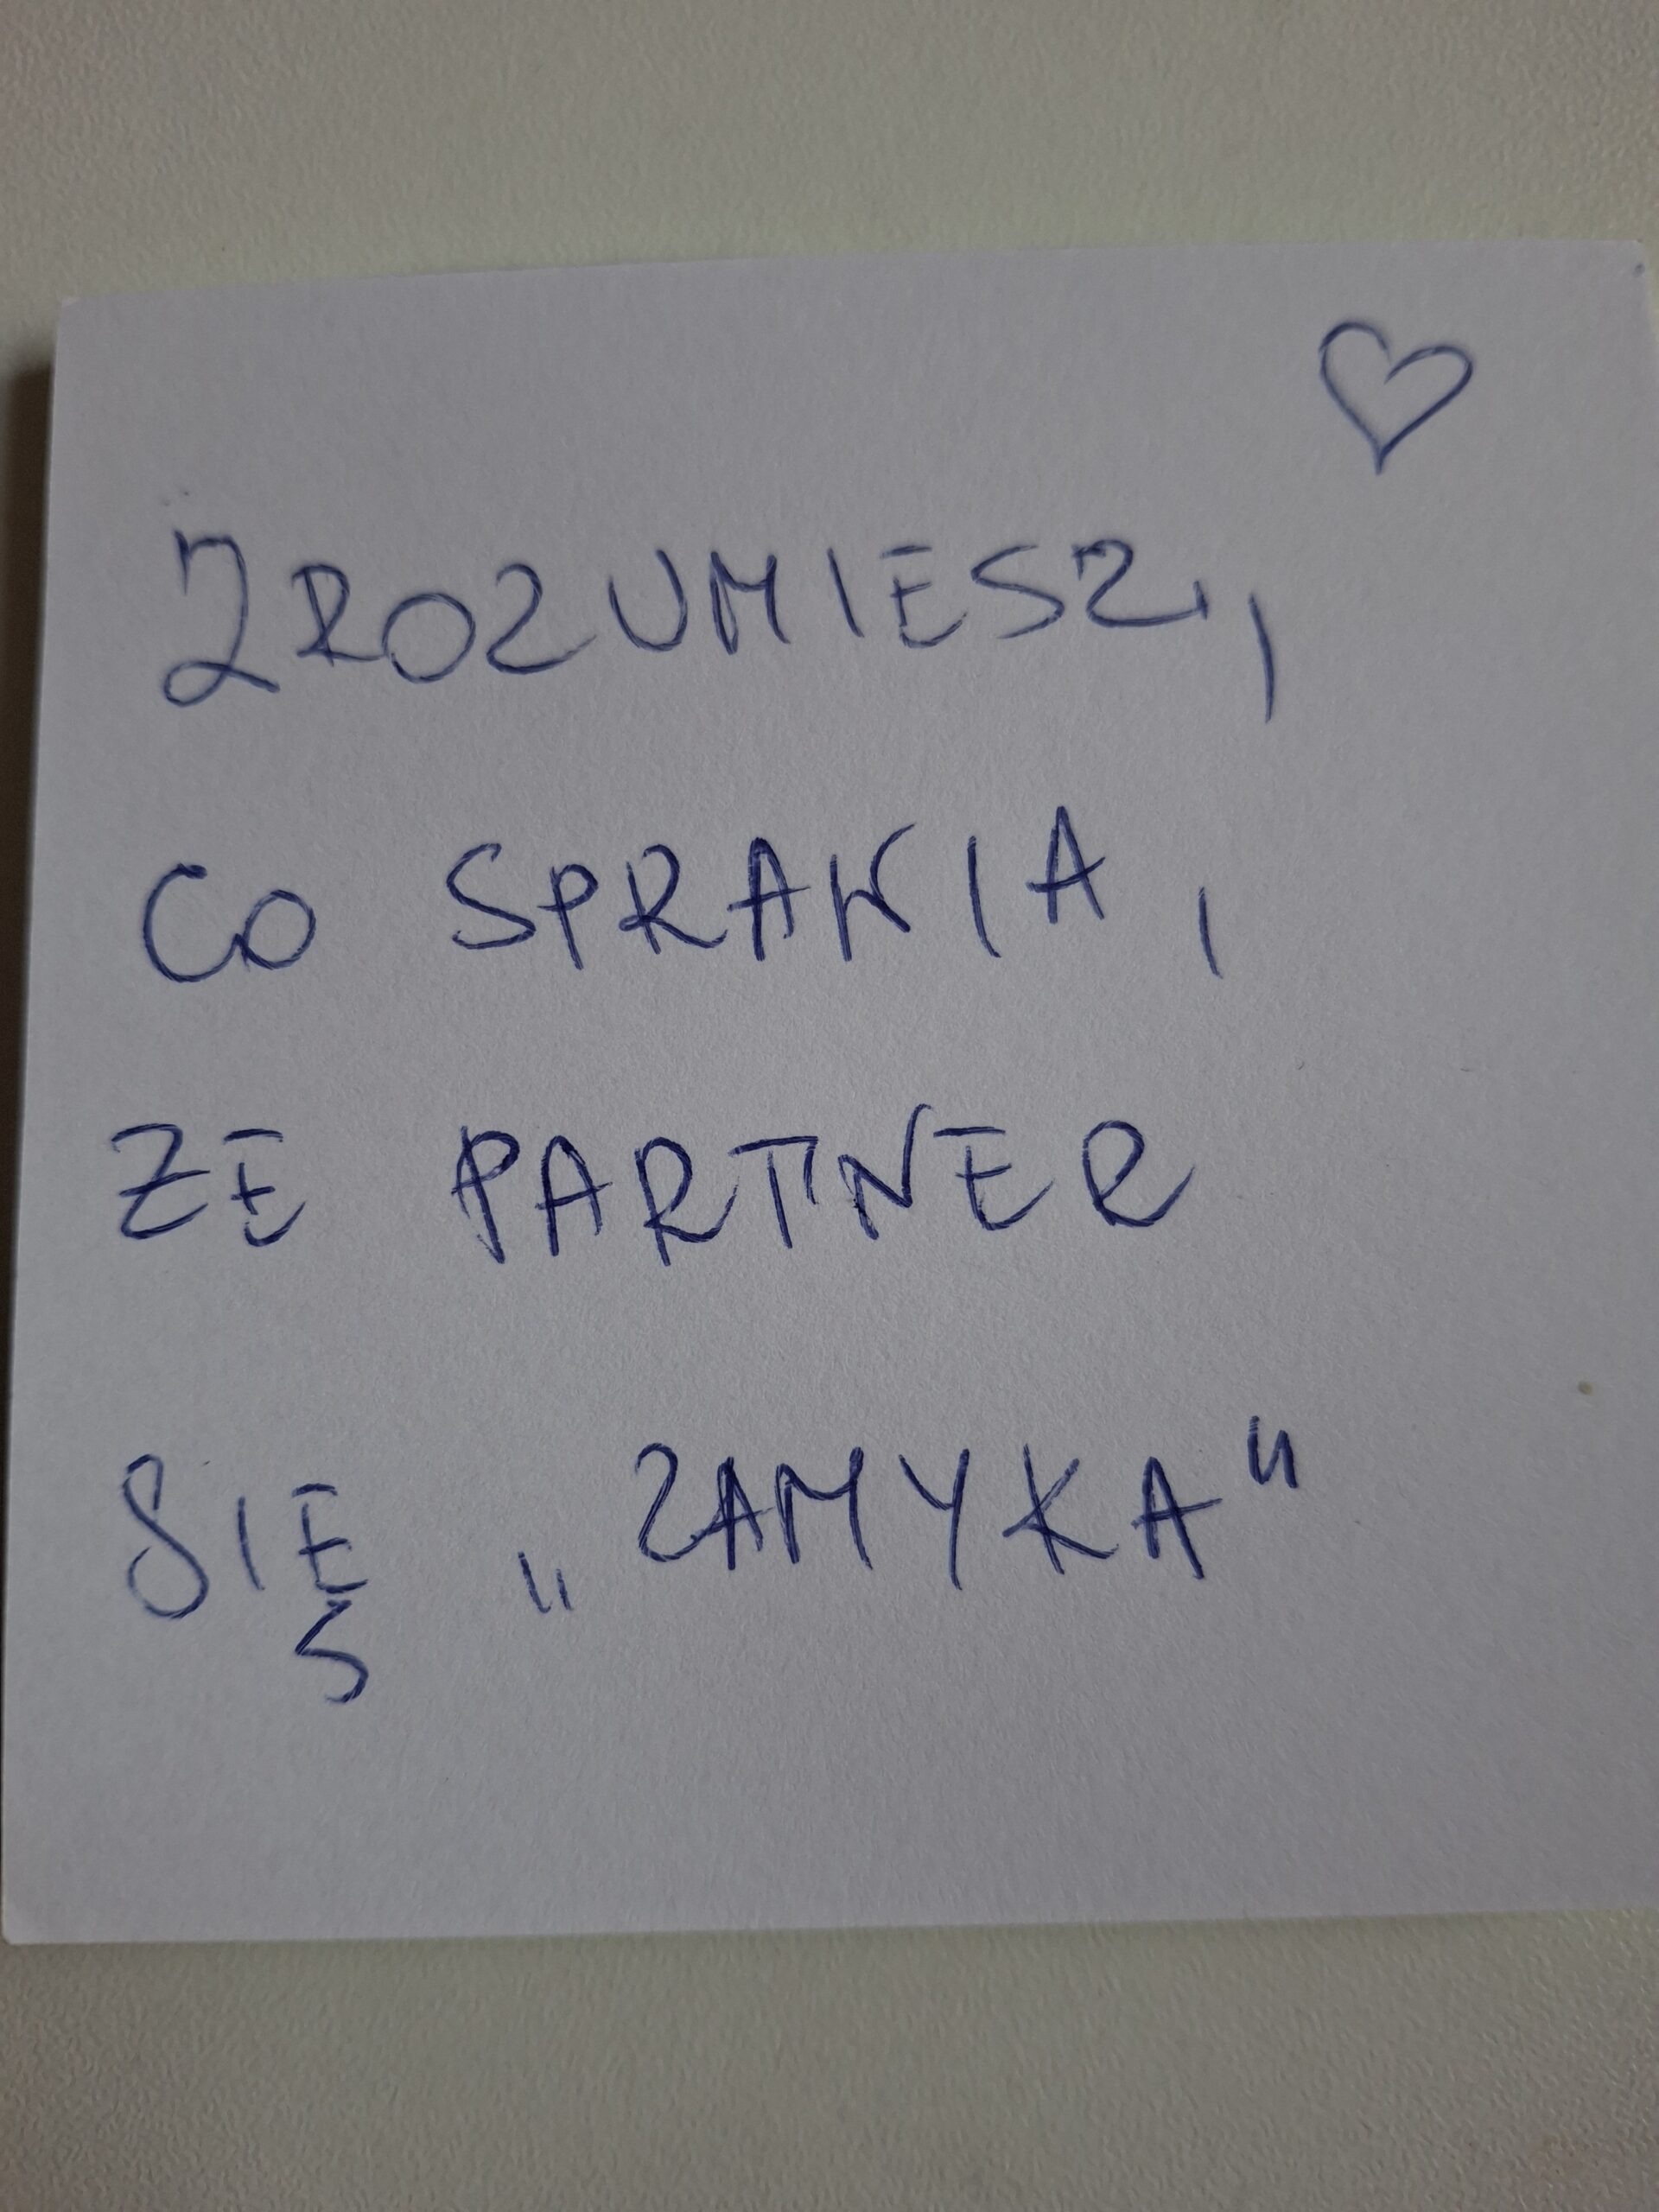 ZROZUMIESZ,
CO SPRAWIA,
ZE PARTNER
SIĘ „ZAMYKA"